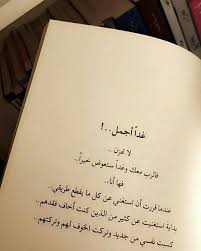 غداً أجمل..!
لا تحزن..
فالرب معك وغداً ستعوض خيراً..
فها أنا..
عندما قررت أن استغني عن كل ما يقطع طريقي..
بداية استغنيت عن كثير من الذين كنت أخاف فقدهم..
كسبت نفسي من جديد وتركت الخوف لهم وتركتهم..